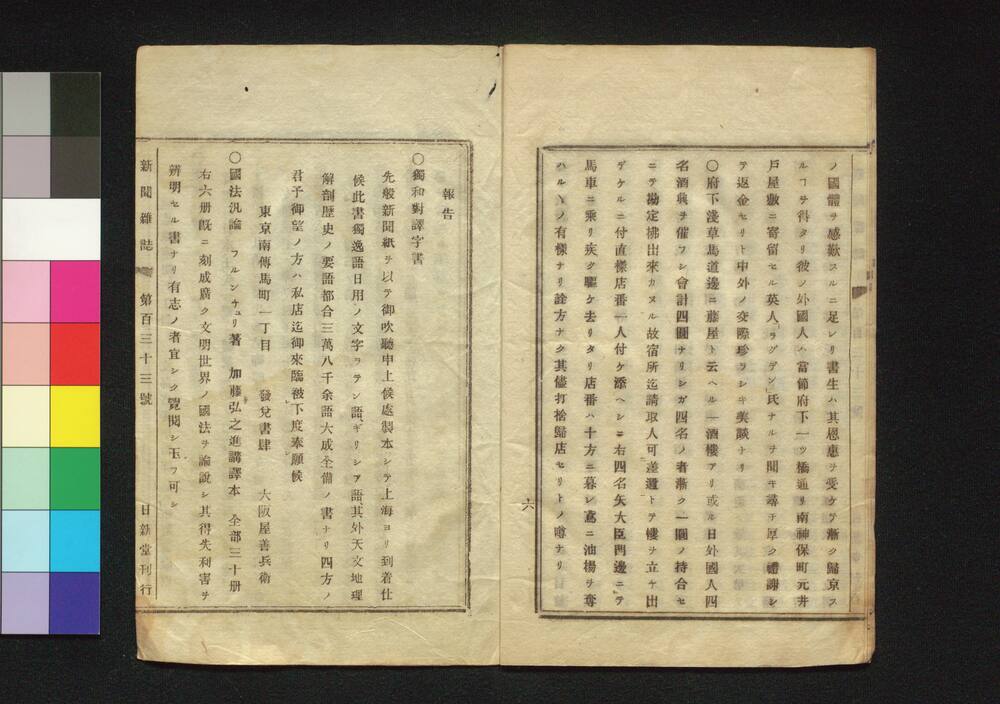 ノ國體ヲ感歎スルニ足レリ書生ハ其恩惠ヲ受ケテ漸ク歸京ス
ルヿヲ得タリ彼ノ外國人ハ當節府下一ツ橋通リ南神保町元井
戸屋敷ニ寄留セル英人ラグデン氏ナルヲ聞キ尋子厚ク禮謝シ
テ返金セリト中外ノ交際珍ラシキ美談ナリ
〇府下淺草馬道邊ニ藤屋ト云ヘル一酒樓アリ或ル日外國人四
名酒興ヲ催フシ會計四圓ナリシガ四名ノ者漸ク一圓ノ持合セ
ニテ勘定拂出來カヌル故宿所迄請取人可差遣トテ樓ヲ立ヤ出
デケルニ付直樣店番一人付ケ添ヘシニ右四名矢大臣門邊ニテ
馬車ニ乘リ疾ク驅ケ去リタリ店番ハ十方ニ暮レ鳶ニ油揚ヲ奪
ハルヽノ有樣ナリ詮方ナク其儘打捨歸店セリトノ噂ナリ
六
報告
〇獨和對譯字書
先般新聞紙ヲ以テ御吹聽申上候處製本シテ上海ヨリ到着仕
候此書獨逸語日用ノ文字ラテン語ギリシア語其外天文地理
解剖歷史ノ要語都合三萬八千余語大成全備ノ書ナリ四方ノ
君子御望ノ方ハ私店迄御來臨被下度奉願候
東京南傳馬町一丁目 發兌書肆 大阪屋善兵衛
〇國法汎論 フルンチュリ著 加藤弘之進講譯本 全部三十册
右六册既ニ刻成廣ク文明世界ノ國法ヲ論說シ其得失利害ヲ
辨明セル書ナリ有志ノ者宜シク覽閱シ玉フ可シ
新聞雜誌 第百三十三號 日新堂刊行